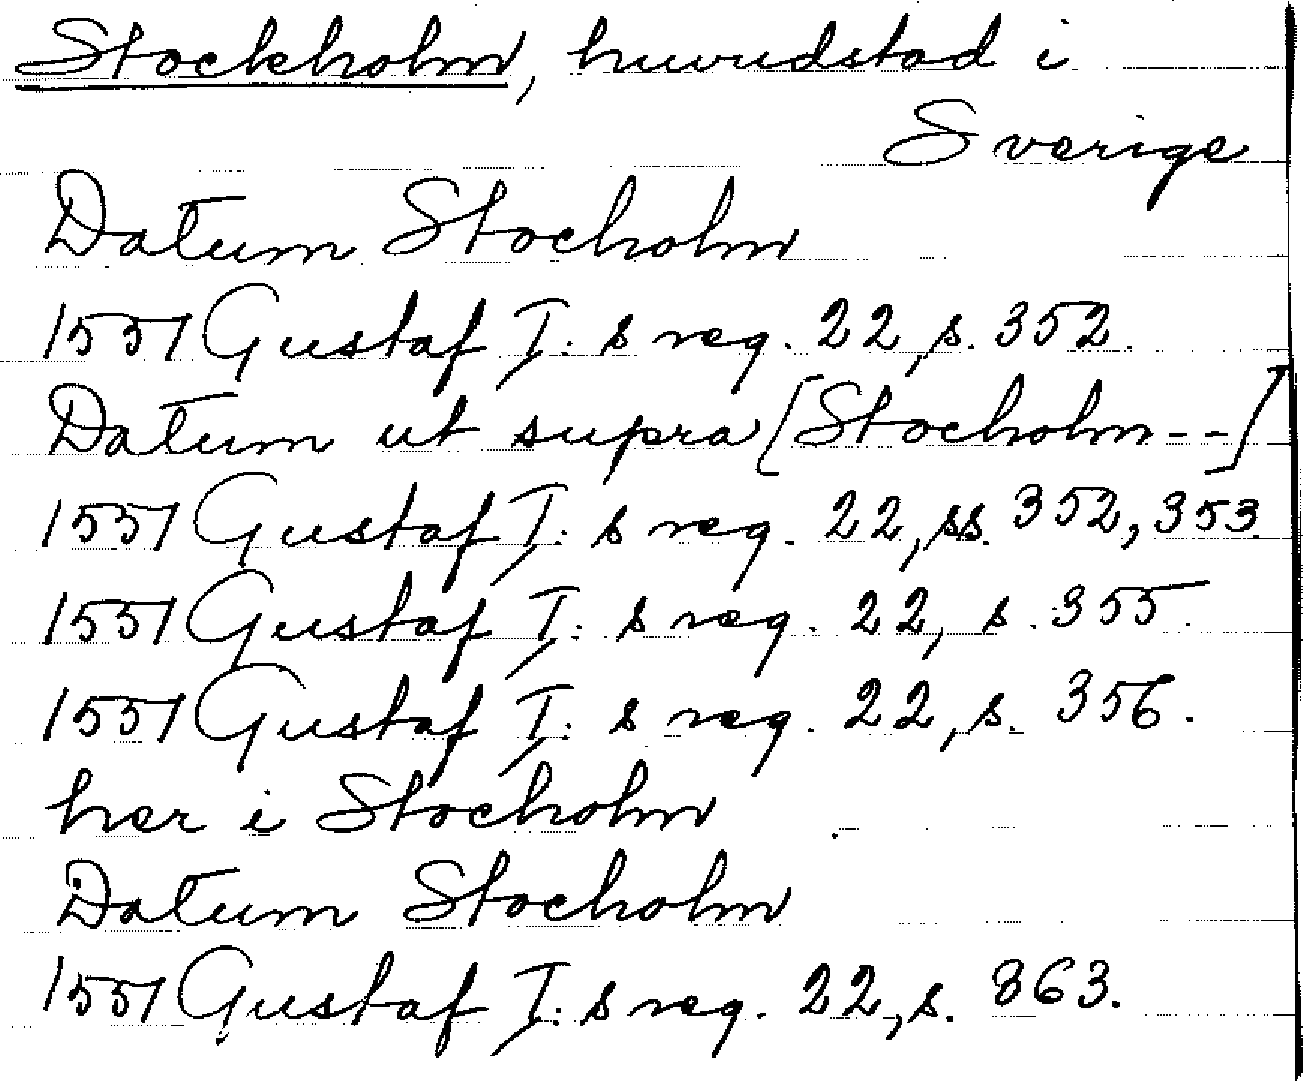 Stockholm, huvudstad i
Sverige
Datum Stocholm
1551 Gustaf I: s reg. 22, s. 352.
Datum ut supra [Stocholm--]
1551 Gustaf I: s reg. 22, ss. 352, 353.
1551 Gustaf I: s reg. 22, s. 355.
1551 Gustaf I: s reg. 22, s. 356.
her i Stocholm
Datum Stocholm
1551 Gustaf I: s reg. 22, s. 363.